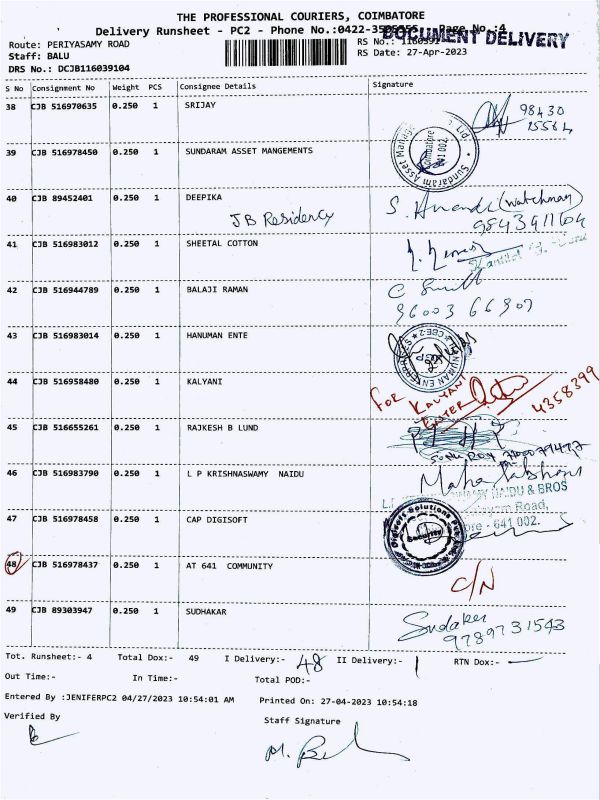 THE PROFESSIONAL COURIERS, COIMBATORE
Delivery Runsheet - PC2 - Phone No.:0422- Page No.:4
DOCUMENT DELIVERY
Route: PERIYASAMY ROAD
RS No.:
Staff: BALU
RS Date: 27-Apr-2023
DRS No.: DCJB116039104
S No Consignment No Weight PCS Consignee Details Signature
38 CJB 516970635 0.250 1 SRIJAY
98430
15564
39 CJB 516978450 0.250 1 SUNDARAM ASSET MANGEMENTS
Sundaram Asset Ltd.
Coimbatore
641 002.
40 CJB 89452401 0.250 1 DEEPIKA
JB Residency
S. (Watchman)
9843911604
41 CJB 516983012 0.250 1 SHEETAL COTTON
42 CJB 516944789 0.250 1 BALAJI RAMAN
96003 66907
43 CJB 516983014 0.250 1 HANUMAN ENTE
HANUMAN ENTERPRISES
CBE-2
44 CJB 516958480 0.250 1 KALYANI
FOR KALYANI
4358399
45 CJB 516655261 0.250 1 RAJKESH B LUND
46 CJB 516983790 0.250 1 L P KRISHNASWAMY NAIDU
NAIDU & BROS
Road,
641 002.
47 CJB 516978458 0.250 1 CAP DIGISOFT
Digisoft Solutions Pvt.
Security
48 CJB 516978437 0.250 1 AT 641 COMMUNITY
C/N
49 CJB 89303947 0.250 1 SUDHAKAR
Sudaker
9789731543
Tot. Runsheet:- 4 Total Dox:- 49 I Delivery:- 48 II Delivery:- 1 RTN Dox:- —
Out Time:- In Time:- Total POD:-
Entered By :JENIFERPC2 04/27/2023 10:54:01 AM Printed On: 27-04-2023 10:54:18
Verified By
Staff Signature